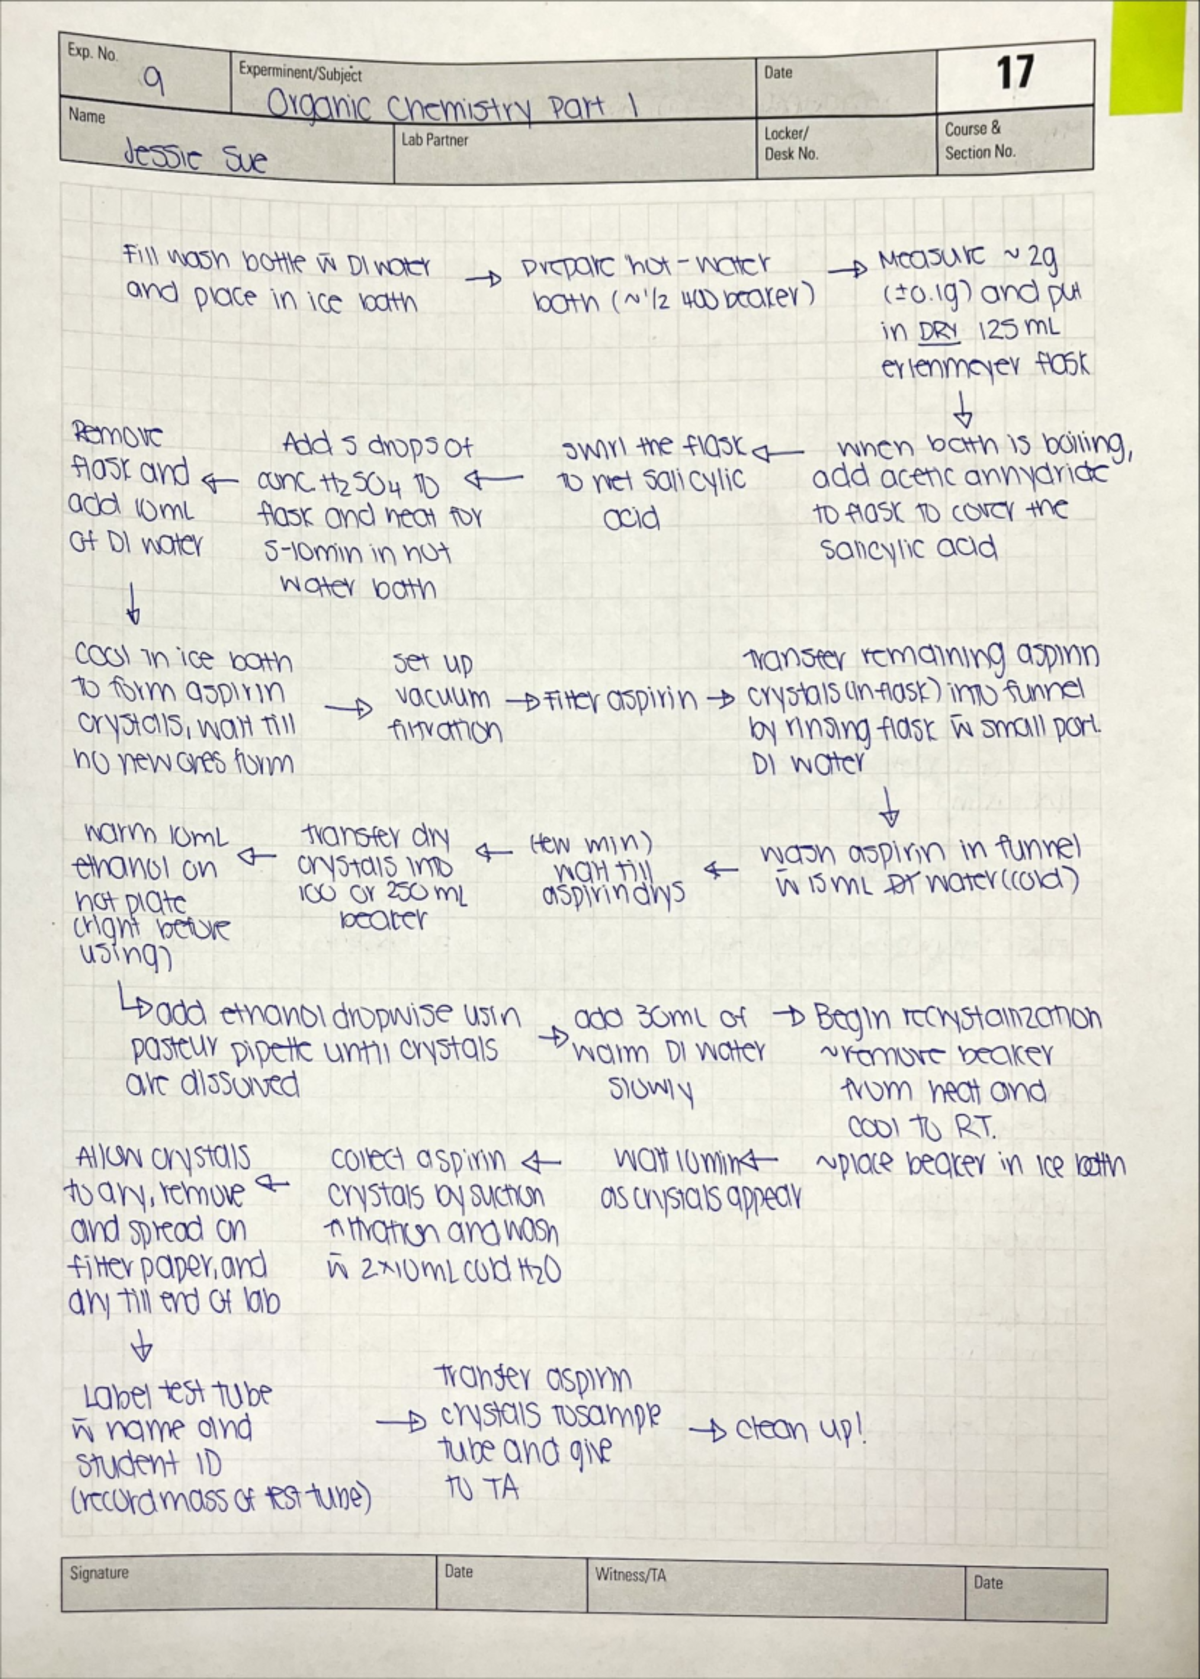 Exp. No.
9
Experminent/Subject
Organic Chemistry Part 1
Date
17
Name
Jessie Sue
Lab Partner
Locker/
Desk No.
Course &
Section No.
Fill wash bottle w̄ DI water
and place in ice bath
→ prepare hot-water
bath (~1/2 400 beaker)
→ Measure ~2g
(±0.1g) and put
in DRY 125 mL
erlenmeyer flask
↓
when bath is boiling,
add acetic anhydride
to flask to cover the
salicylic acid
← swirl the flask
to wet salicylic
acid
← Add 5 drops of
conc H2SO4 to
flask and heat for
5-10min in hot
water bath
← Remove
flask and
add 10mL
of DI water
↓
cool in ice bath
to form aspirin
crystals, wait till
no new ones form
→ set up
vacuum
filtration
→ filter aspirin →
transfer remaining aspirin
crystals (in flask) into funnel
by rinsing flask w̄ small port.
DI water
↓
wash aspirin in funnel
w̄ 15mL DI water (cold)
← (few min)
wait till
aspirin drys
← transfer dry
crystals into
100 or 250 mL
beaker
← warm 10mL
ethanol on
hot plate
(right before
using)
↳ add ethanol dropwise usin
pasteur pipette until crystals
are dissolved
→ add 30mL of
warm DI water
slowly
→ Begin recrystalinzation
~remove beaker
from heat and
cool to RT.
~place beaker in ice bath
← wait 10min
as crystals appear
← collect aspirin
crystals by suction
filtration and wash
w̄ 2×10mL cold H2O
← Allow crystals
to dry, remove
and spread on
filter paper, and
dry till end of lab
↓
Label test tube
w̄ name and
student ID
(record mass of test tube)
→ transfer aspirin
crystals to sample
tube and give
to TA
→ clean up!
Signature
Date
Witness/TA
Date